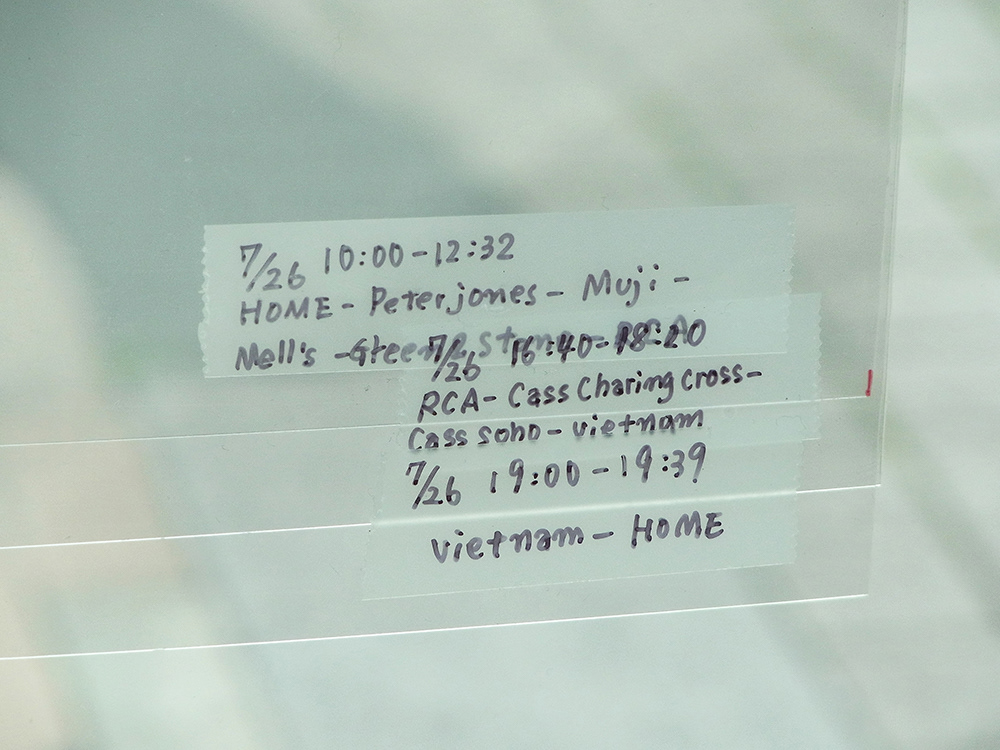 7/26 10:00-12:32
HOME - Peterjones - Muji -
Mell's - Green
7/26 16:40-18:20
RCA - Cass Charing cross -
Cass soho - vietnam
7/26 19:00 - 19:39
vietnam - HOME